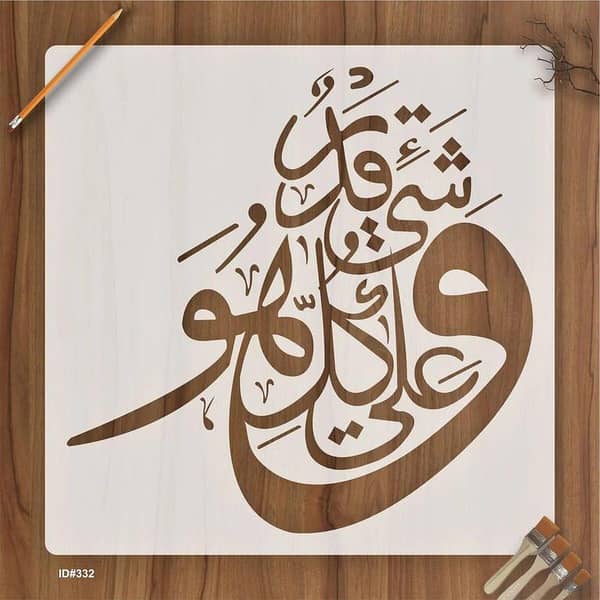 وَهُوَ عَلَىٰ كُلِّ شَيْءٍ قَدِيرٌ
ID#332